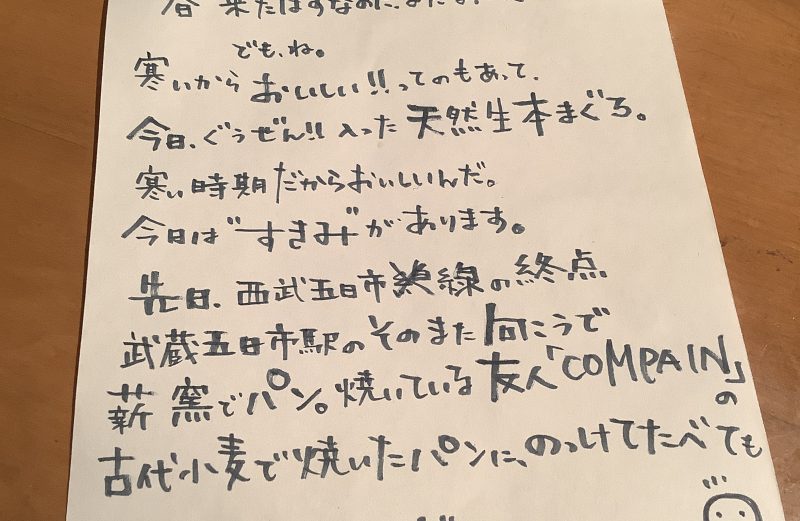 でも、ね。
寒いから おいしい!!ってのもあって、
今日、ぐうぜん!! 入った 天然生本まぐろ。
寒い時期だからおいしいんだ。
今日は"すきみ"があります。
先日、西武五日市線の終点
武蔵五日市駅のそのまた向こうで
薪窯でパン。焼いている友人「COMPAIN」の
古代小麦で焼いたパンに、のっけてたべても